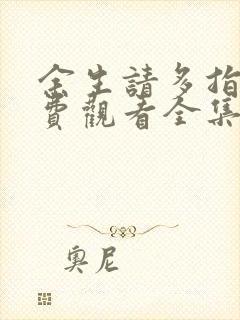 余生請多指
費觀看全集
奧尼